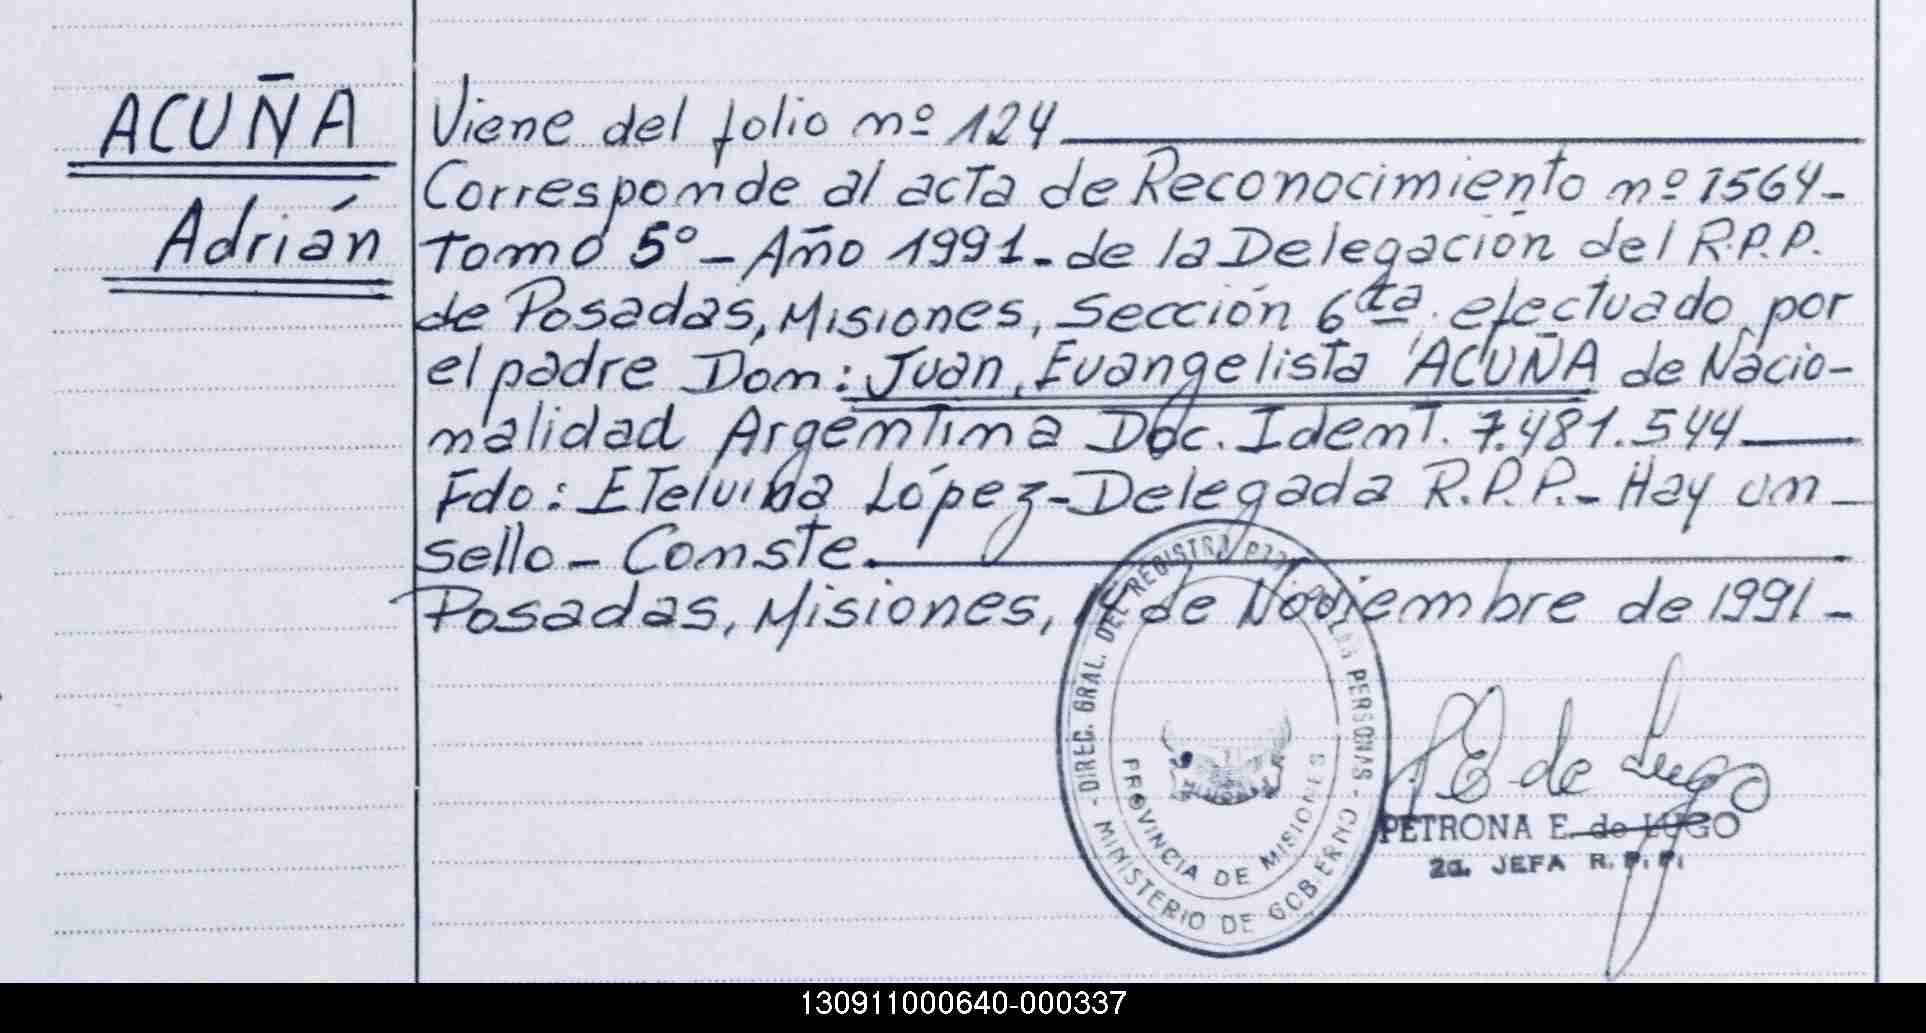 ACUÑA
Adrián
Viene del folio nº 124
Corresponde al acta de Reconocimiento nº 1564-
Tomo 5º - Año 1991 - de la Delegación del R.P.P.
de Posadas, Misiones, Sección 6ta. efectuado por
el padre Don: Juan Evangelista ACUÑA de Nacio-
nalidad Argentina Doc. Ident. 7.481.544
Fdo: Etelvina López - Delegada R.P.P. - Hay un
sello - Conste.
Posadas, Misiones, de Noviembre de 1991 -
- DIREC. GRAL. DEL REGISTRO PERSONAS -
MINISTERIO DE GOBIERNO
PROVINCIA DE MISIONES
P E de Lugo
PETRONA E. de LUGO
2a. JEFA R. P. P.
130911000640-000337